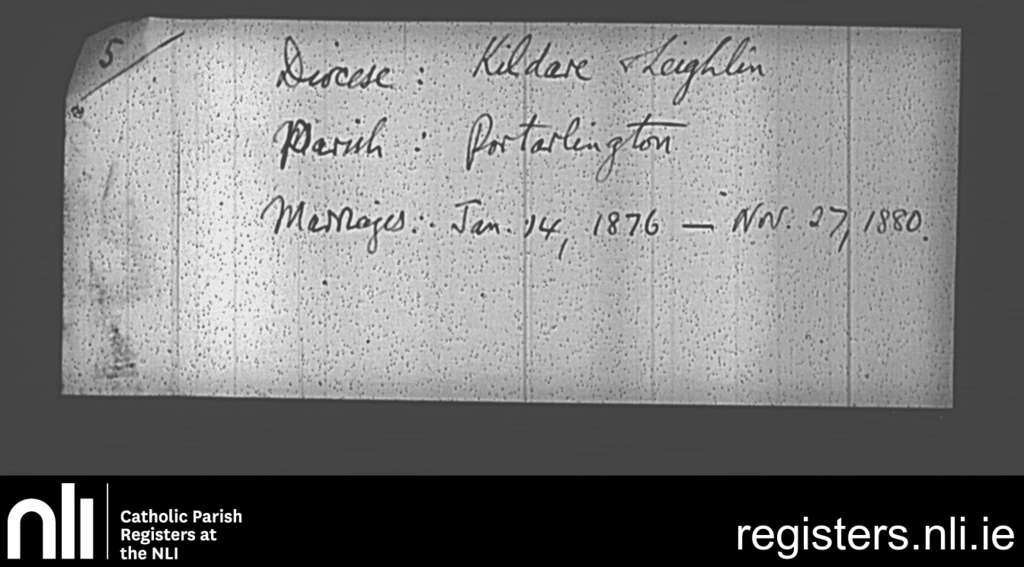 5
Diocese : Kildare & Leighlin
Parish : Portarlington
Marriages : Jan. 14, 1876 — Nov. 27, 1880.
nli
Catholic Parish
Registers at
the NLI
registers.nli.ie